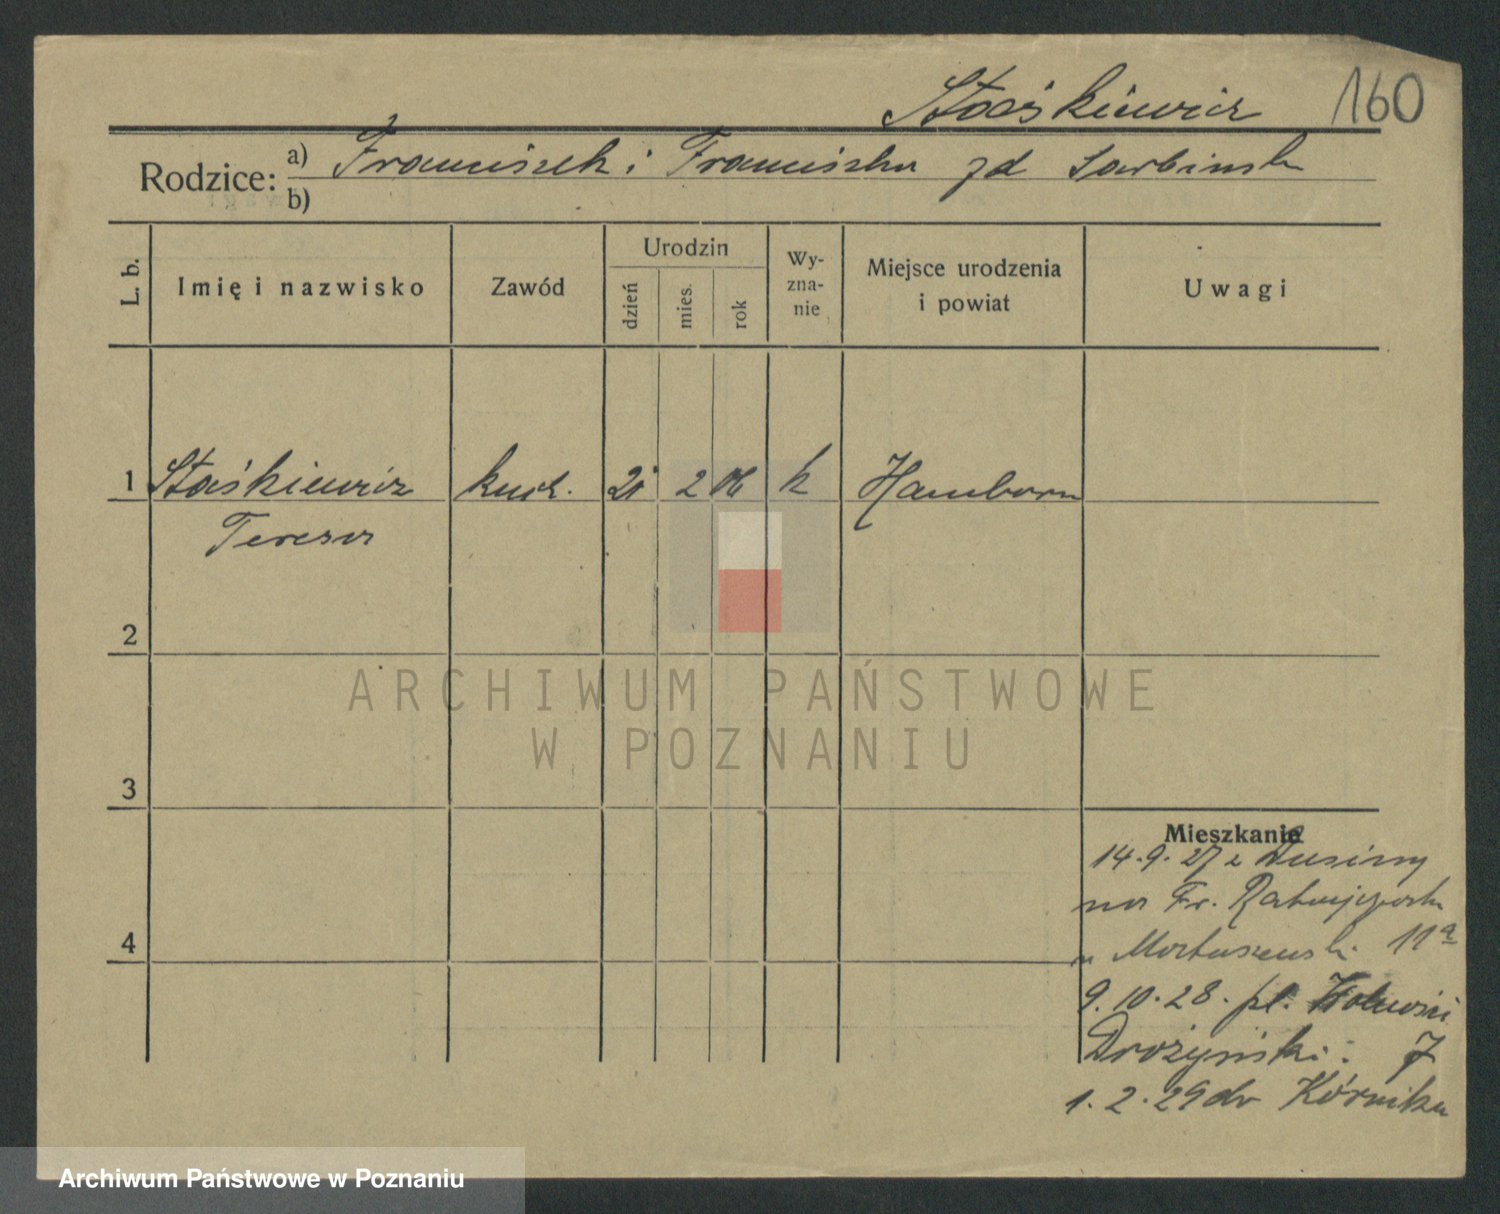 Staśkiewicz 160
Rodzice: a) Franciszek i Franciszka zd Sarbinsk
b)
L. b. Imię i nazwisko Zawód Urodzin dzień mies. rok Wy-zna-nie Miejsce urodzenia i powiat Uwagi
1 Staśkiewicz kuch. 2 06 k Hamborn
Teresa
2
ARCHIWUM PAŃSTWOWE
W POZNANIU
3
Mieszkanie
14.9.27 z
na Fr. Ratajczaka
u 11a
4
9.10.28. pl. Wolności
Drożyński: 7
1.2.29 do Kórnika
Archiwum Państwowe w Poznaniu